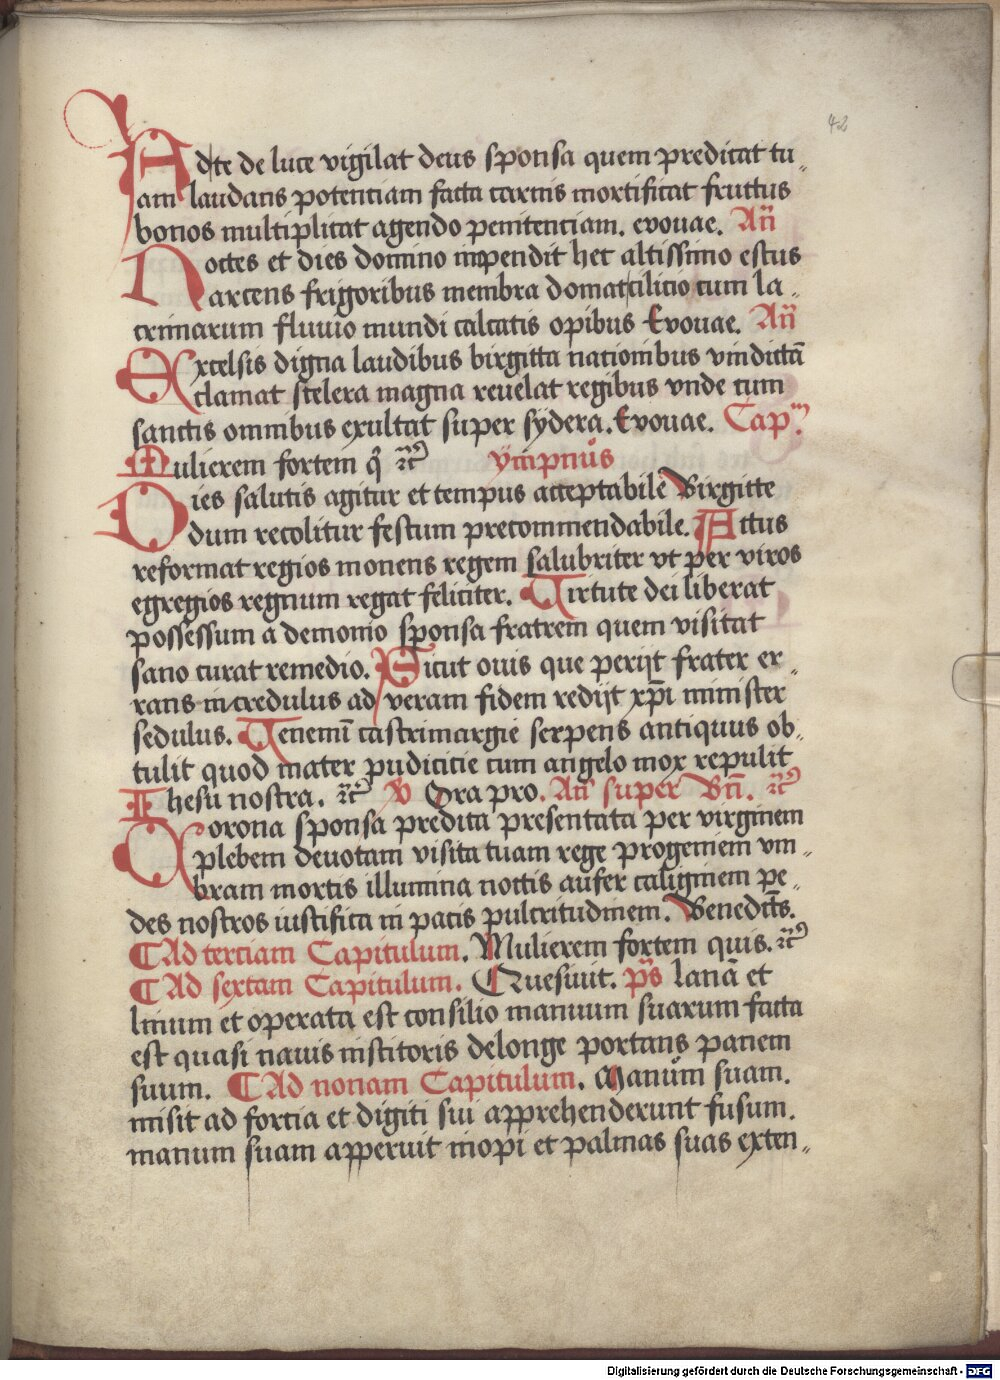 42
Ad te de luce vigilat deus sponsa quem predicat tu
am laudans potenciam facta carnis mortificat fructus
bonos multiplicat agendo penitenciam. evouae. An̄
Noctes et dies domino inpendit hec altissimo estus
arcens frigoribus membra domat cilicio cum la
crimarum fluuio mundi calcatis opibus Evouae. An̄
Excelsis digna laudibus birgitta nationibus vindictā
clamat scelera magna reuelat regibus vnde cum
sanctis omnibus exultat super sydera. Evouae. Capm̄.
Mulierem fortem q̄ ⁊c̄ ympnus
Dies salutis agitur et tempus acceptabilē Birgitte
dum recolitur festum precommendabile. Actus
reformat regios monens regem salubriter vt per viros
egregios regnum regat feliciter. Virtute dei liberat
possessum a demonio sponsa fratrem quem visitat
sano curat remedio. Sicut ouis que perijt frater er
rans incredulus ad veram fidem redijt xp̄i minister
sedulus. Venenū castrimargie serpens antiquus ob
tulit quod mater pudicicie cum angelo mox repulit
Ihesu nostra. ⁊c̄ V Ora pro. An̄ super Bn̄. ⁊c̄
Corona sponsa predita presentata per virginem
plebem deuotam visita tuam rege progeniem vm
bram mortis illumina noctis aufer caliginem pe
des nostros iustifica in pacis pulcritudinem. Benedict̄s.
¶ Ad terciam Capitulum. Mulierem fortem quis. ⁊c̄
¶ Ad sextam Capitulum. Quesiuit. p̄s lanā et
linum et operata est consilio manuum suarum facta
est quasi nauis institoris delonge portans panem
suum. ¶ Ad nonam Capitulum. Manum suam.
misit ad forcia et digiti sui apprehenderunt fusum.
manum suam apperuit inopi et palmas suas exten
Digitalisierung gefördert durch die Deutsche Forschungsgemeinschaft - DFG